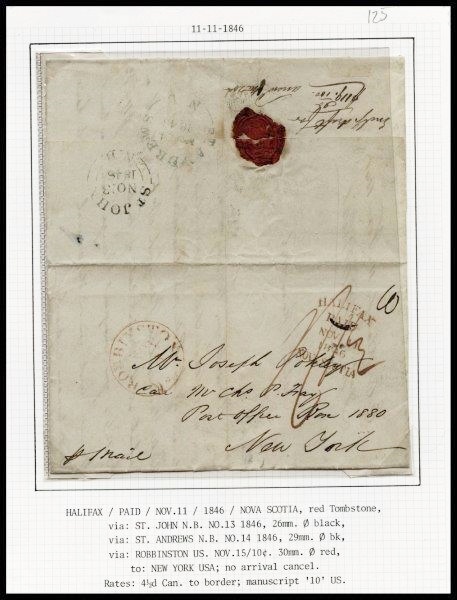 125
11-11-1846
ST. JOHN
NO.13
1846
HALIFAX
PAID
NOV.11
1846
NOVA SCOTIA
ROBBINSTON
10
Mr. Joseph
Care Mr Chs P. Fray
Post Office Box 1880
New York
p Mail
HALIFAX / PAID / NOV.11 / 1846 / NOVA SCOTIA, red Tombstone,
via: ST. JOHN N.B. NO.13 1846, 26mm. Ø black,
via: ST. ANDREWS N.B. NO.14 1846, 29mm. Ø bk,
via: ROBBINSTON US. NOV.15/10¢. 30mm. Ø red,
to: NEW YORK USA; no arrival cancel.
Rates: 4½d Can. to border; manuscript '10' US.